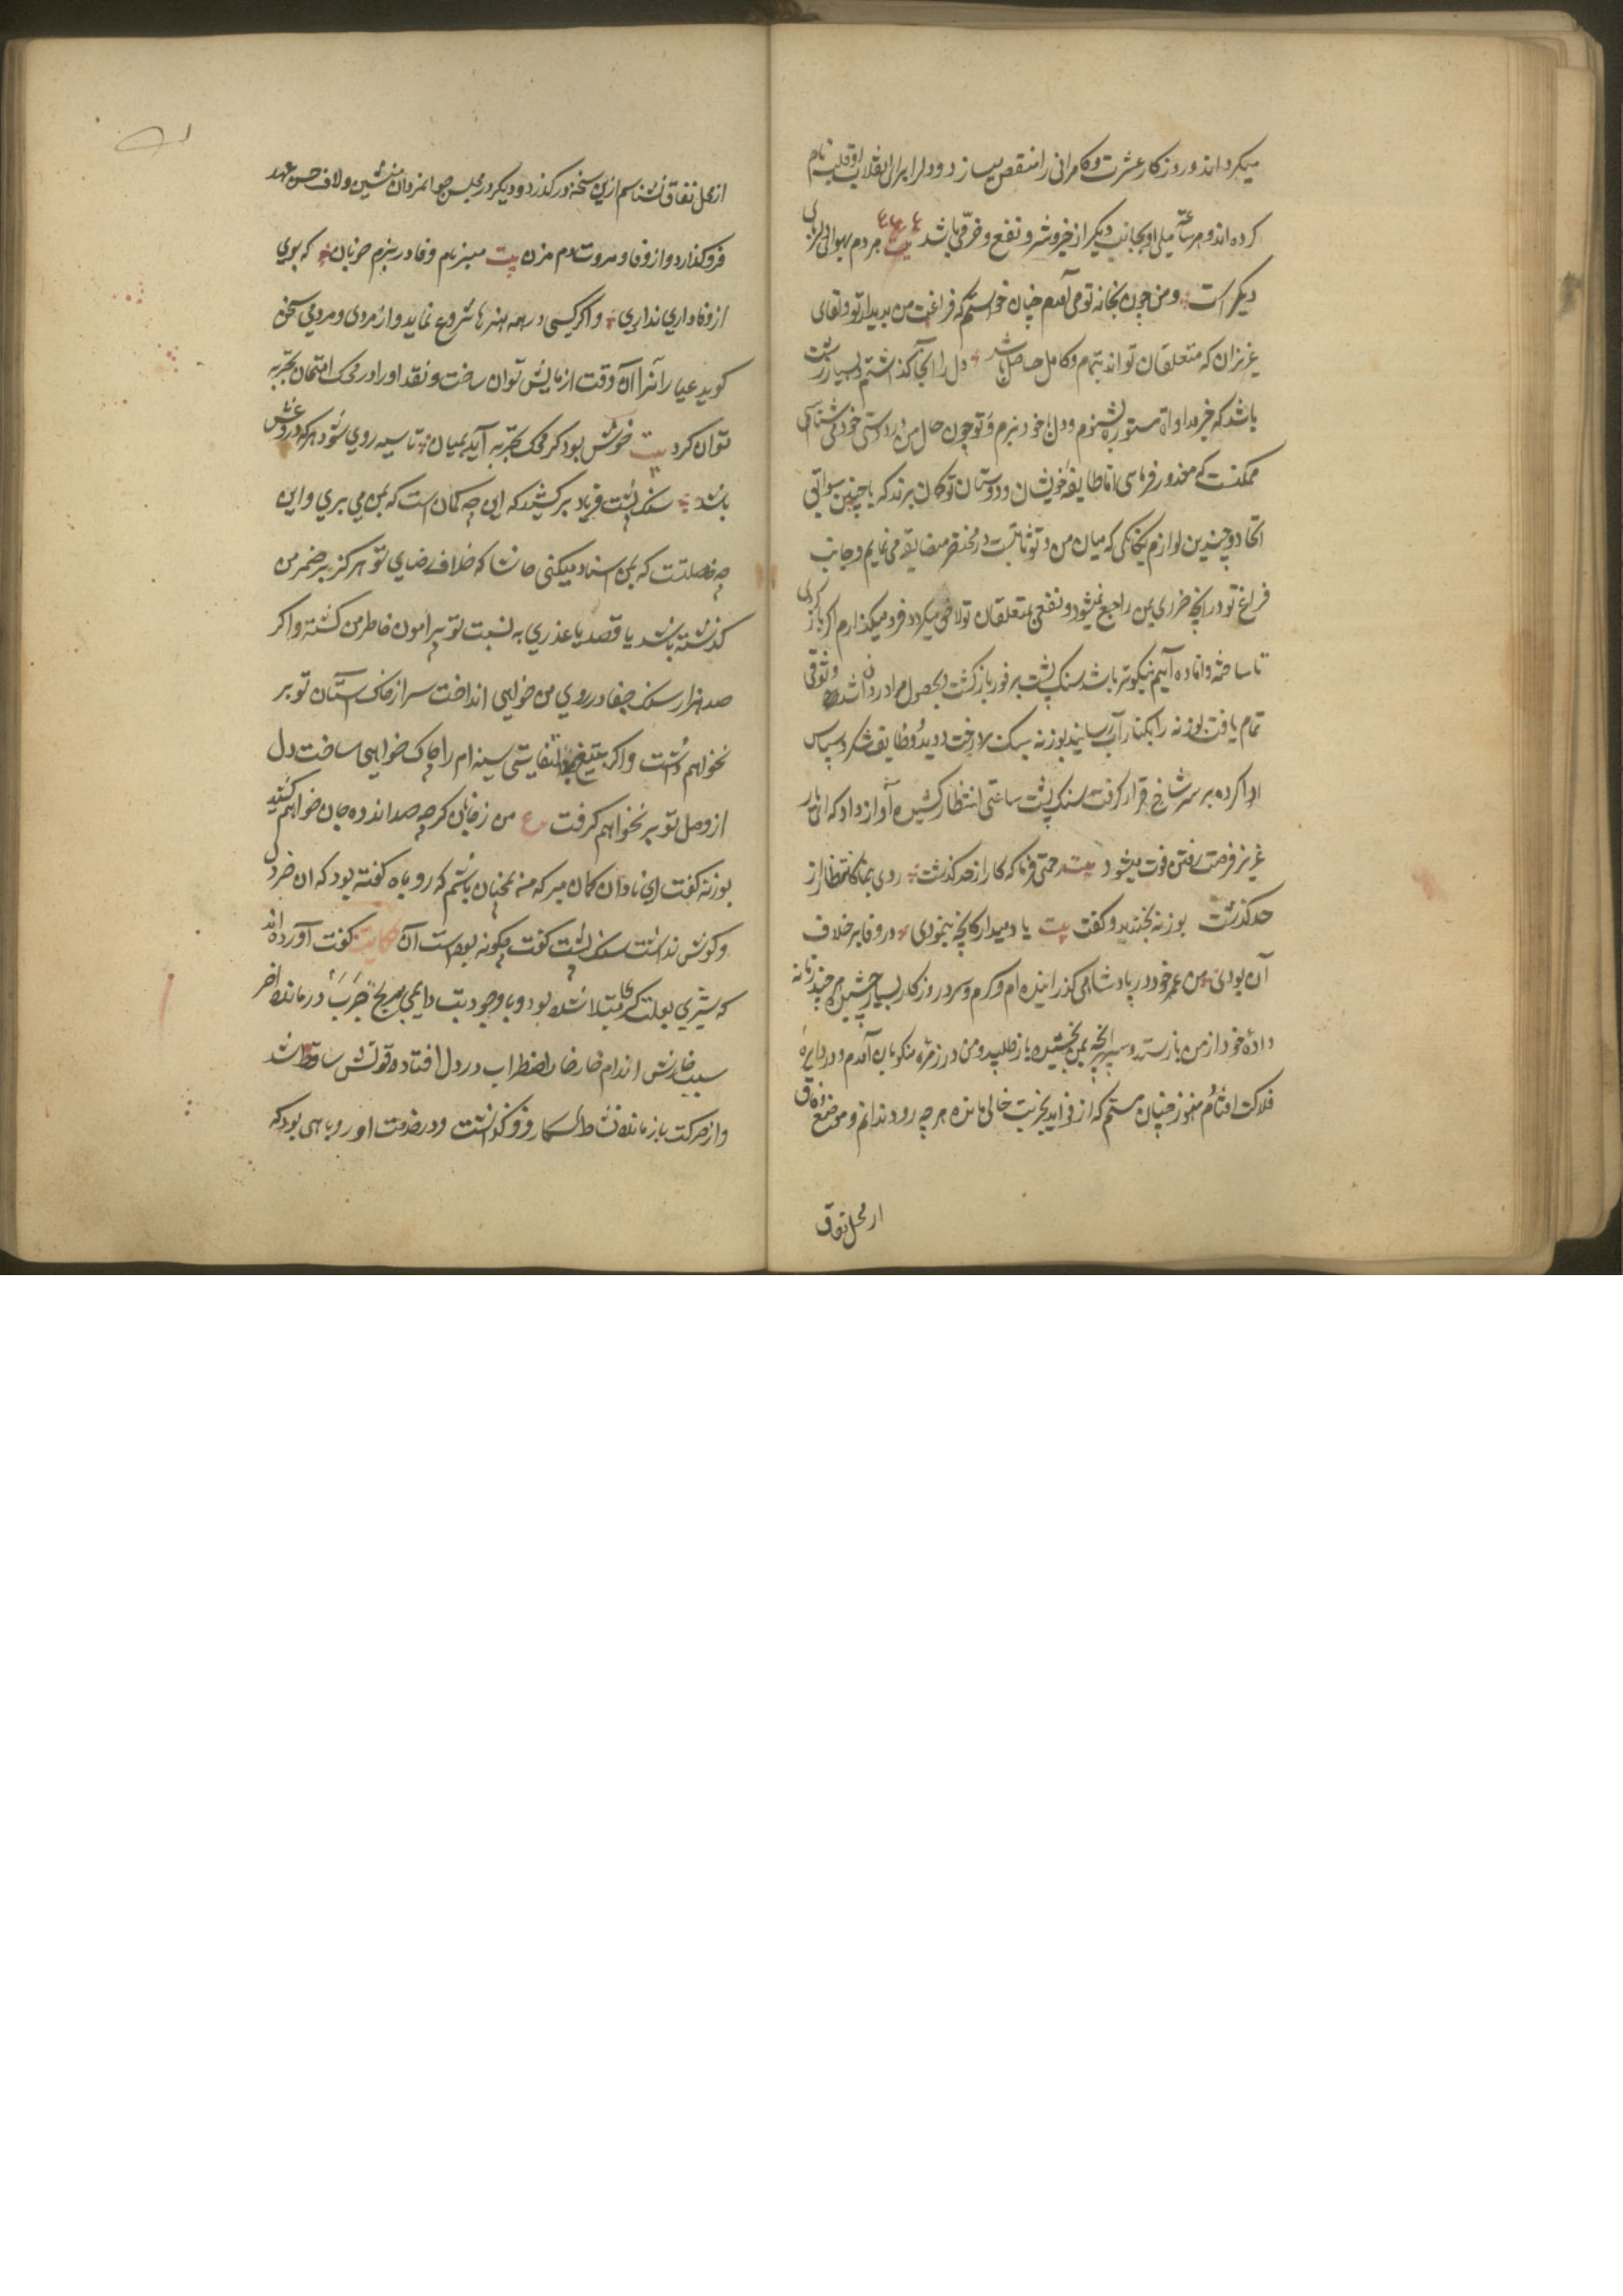 میکرداند و روزکار عشرت و کامرانی را منقص میسازد و دل را برای انقلاب او قلب نام
کرده اند و هر ساعت میل او بجانب دیکر از خیر و شر و نفع و ضر می باشد بیت هر دم بهوای دلربای
دیکر است و من چون بخانه تو می آمدم چنان خواستم که فراغت من بدیدار تو و لقای
عزیزان که متعلقان تواند بتمام و کامل حاصل باشد دل را آنجا کذاشتم و بسیار زشت
باشد که خبر مداواة مستوره بشنوم و دل با خود نبرم و تو چون حال من در دوستی خود می شناسی
ممکنست که معذور فرمای اما طایفه خویشان و دوستان تو کمان برند که با چنین سوابق
اتحاد و چندین لوازم یکانکی که میان من و تو ثابتست در محقر مضایقه می نمایم و جانب
فراغ تو در آنچه ضرری بمن راجع نمیشود و نفعی بمتعلقان تو لاحق میکردد فرو میکذارم اکر باز کردی
تا ساخته و آماده آییم نیکوتر باشد سنک پشت بر فور باز کشت و بحصول مراد روان شد و وثوقی
تمام یافت بوزنه را بکنار آب رسانید بوزنه سبک بالا درخت دوید و وظایف شکر و سپاس
ادا کرده بر سر شاخ قرار کرفت سنک پشت ساعتی انتظار کشیده آواز داد که ای یار
عزیز فرصت رفتن فوت میشود بیت رحمتی فرما که کار از حد کذشت روی بنما کانتظار از
حد کذشت بوزنه بخندید و کفت بیت یاد میدار کانچه بنمودی در وفا بر خلاف
آن بودی من عمر خود در پادشاهی کذرانیده ام و کرم و سرد روزکار بسیار چشیده هر چند زمانه
داده خود از من باز ستد و سپهر آنچه بمن بخشیده باز طلبید و من در زمره منکوبان آمدم و در دایره
فلاکت افتادم هنوز چنان نیستم که از فواید تجربت خالی مانده هر چه رود ندانم و موضع وفاق
از محل نفاق
از محل نفاق نشناسم ازین سخن در کذر و دیکر در مجلس جوانمردان منشین و لاف حسن عهد
فرو کذار و از وفا و مروت دم مزن بیت مبر نام وفا در بزم خوبان که بوی
از وفاداری نداری و اکر کسی در همه هنرها شروع نماید و از مردی و مردمی سخن
کوید عیار آنرا آن وقت ازمایش توان ساخت و نقد او را در محک امتحان تجربه
توان کرد بیت خوش بود کر محک تجربه آید بمیان تا سیه روی شود هر که در و غش
باشد سنک پشت فریاد بر کشید که این چه کمان است که بمن می بری و این
چه خصلتست که بمن اسناد میکنی حاشا که خلاف رضای تو هرکز بر ضمیر من
کذشته باشد یا قصد یا عذری به نسبت تو پیرامون خاطر من کشته و اکر
صد هزار سنک جفا در روی من خواهی انداخت سر از خاک آستان تو بر
نخواهم داشت و اکر بتیغ بی التفاتی سینه ام را چاک خواهی ساخت دل
از وصل تو بر نخواهم کرفت ع من زفان کر چه صد اندوه جان خواهم کشید
بوزنه کفت ای نادان کمان مبر که من همچنان باشم که روباه کفته بود که ان خر دل
و کوش نداشت سنک پشت کفت چکونه بوده است آن حکایت کفت آورده اند
که شیری بعلت کری مبتلا شده بود و با وجود تب دایمی برنج جرب در مانده آخر
سبب خارش اندام خار خار اضطراب در دل افتاده قوتش ساقط شد
و از حرکت باز مانده نشاط شکار فرو کذاشت و در خدمت او روباهی بود که